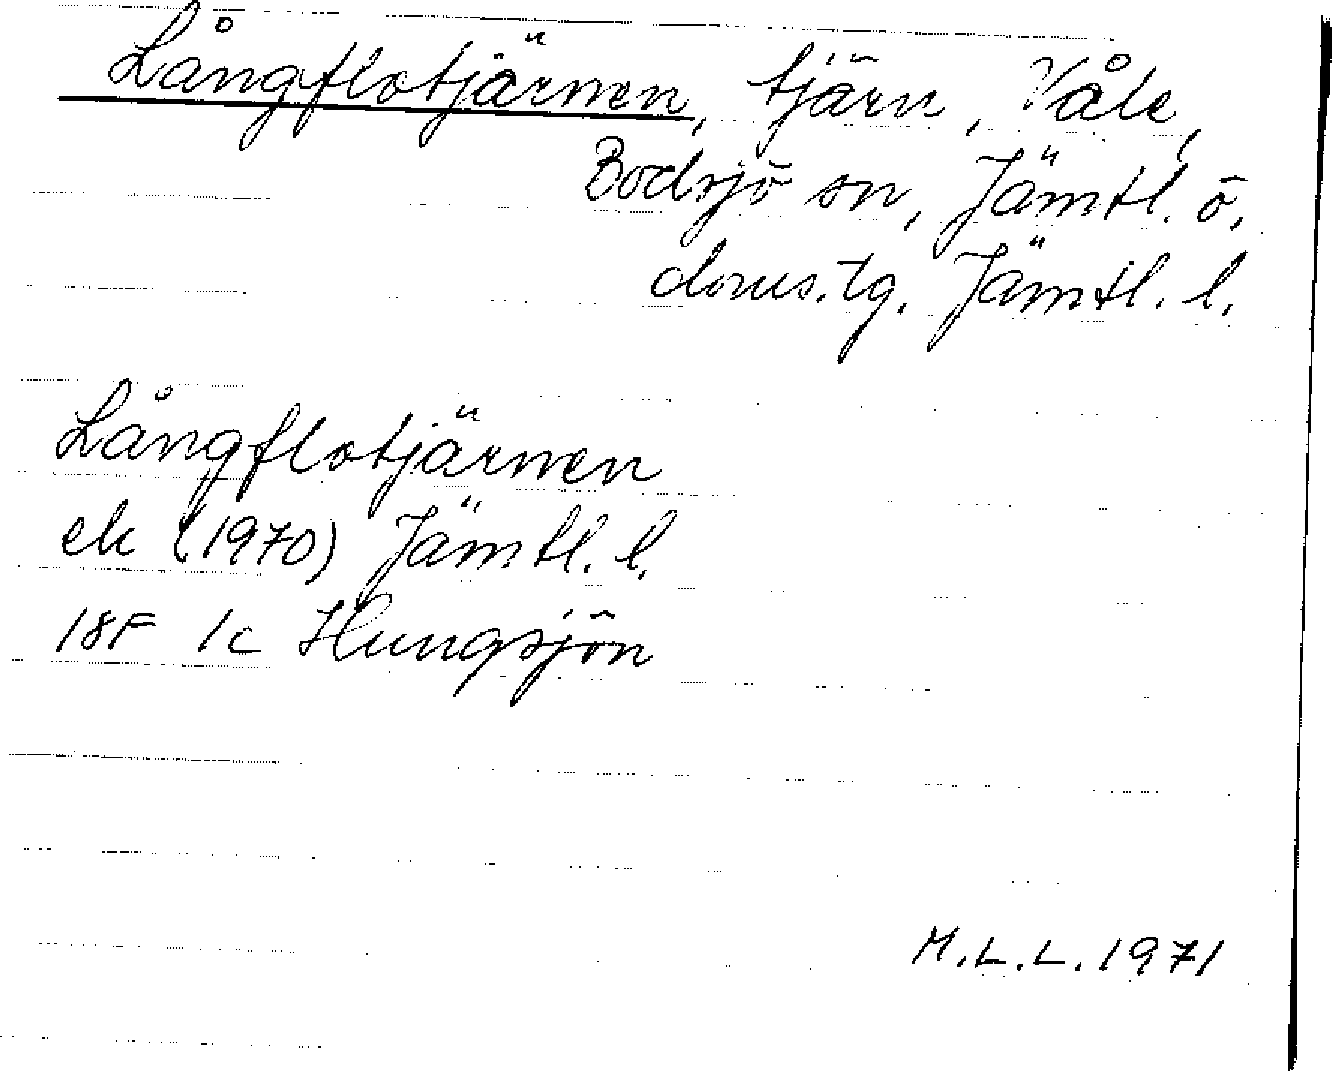 Långflotjärnen, tjärn, Våle,
Bodsjö sn, Jämtl. ö.
doms.tg. Jämtl. l.
Långflotjärnen
ek (1970) Jämtl. l.
18F 1c Hungsjön
M.L.L. 1971